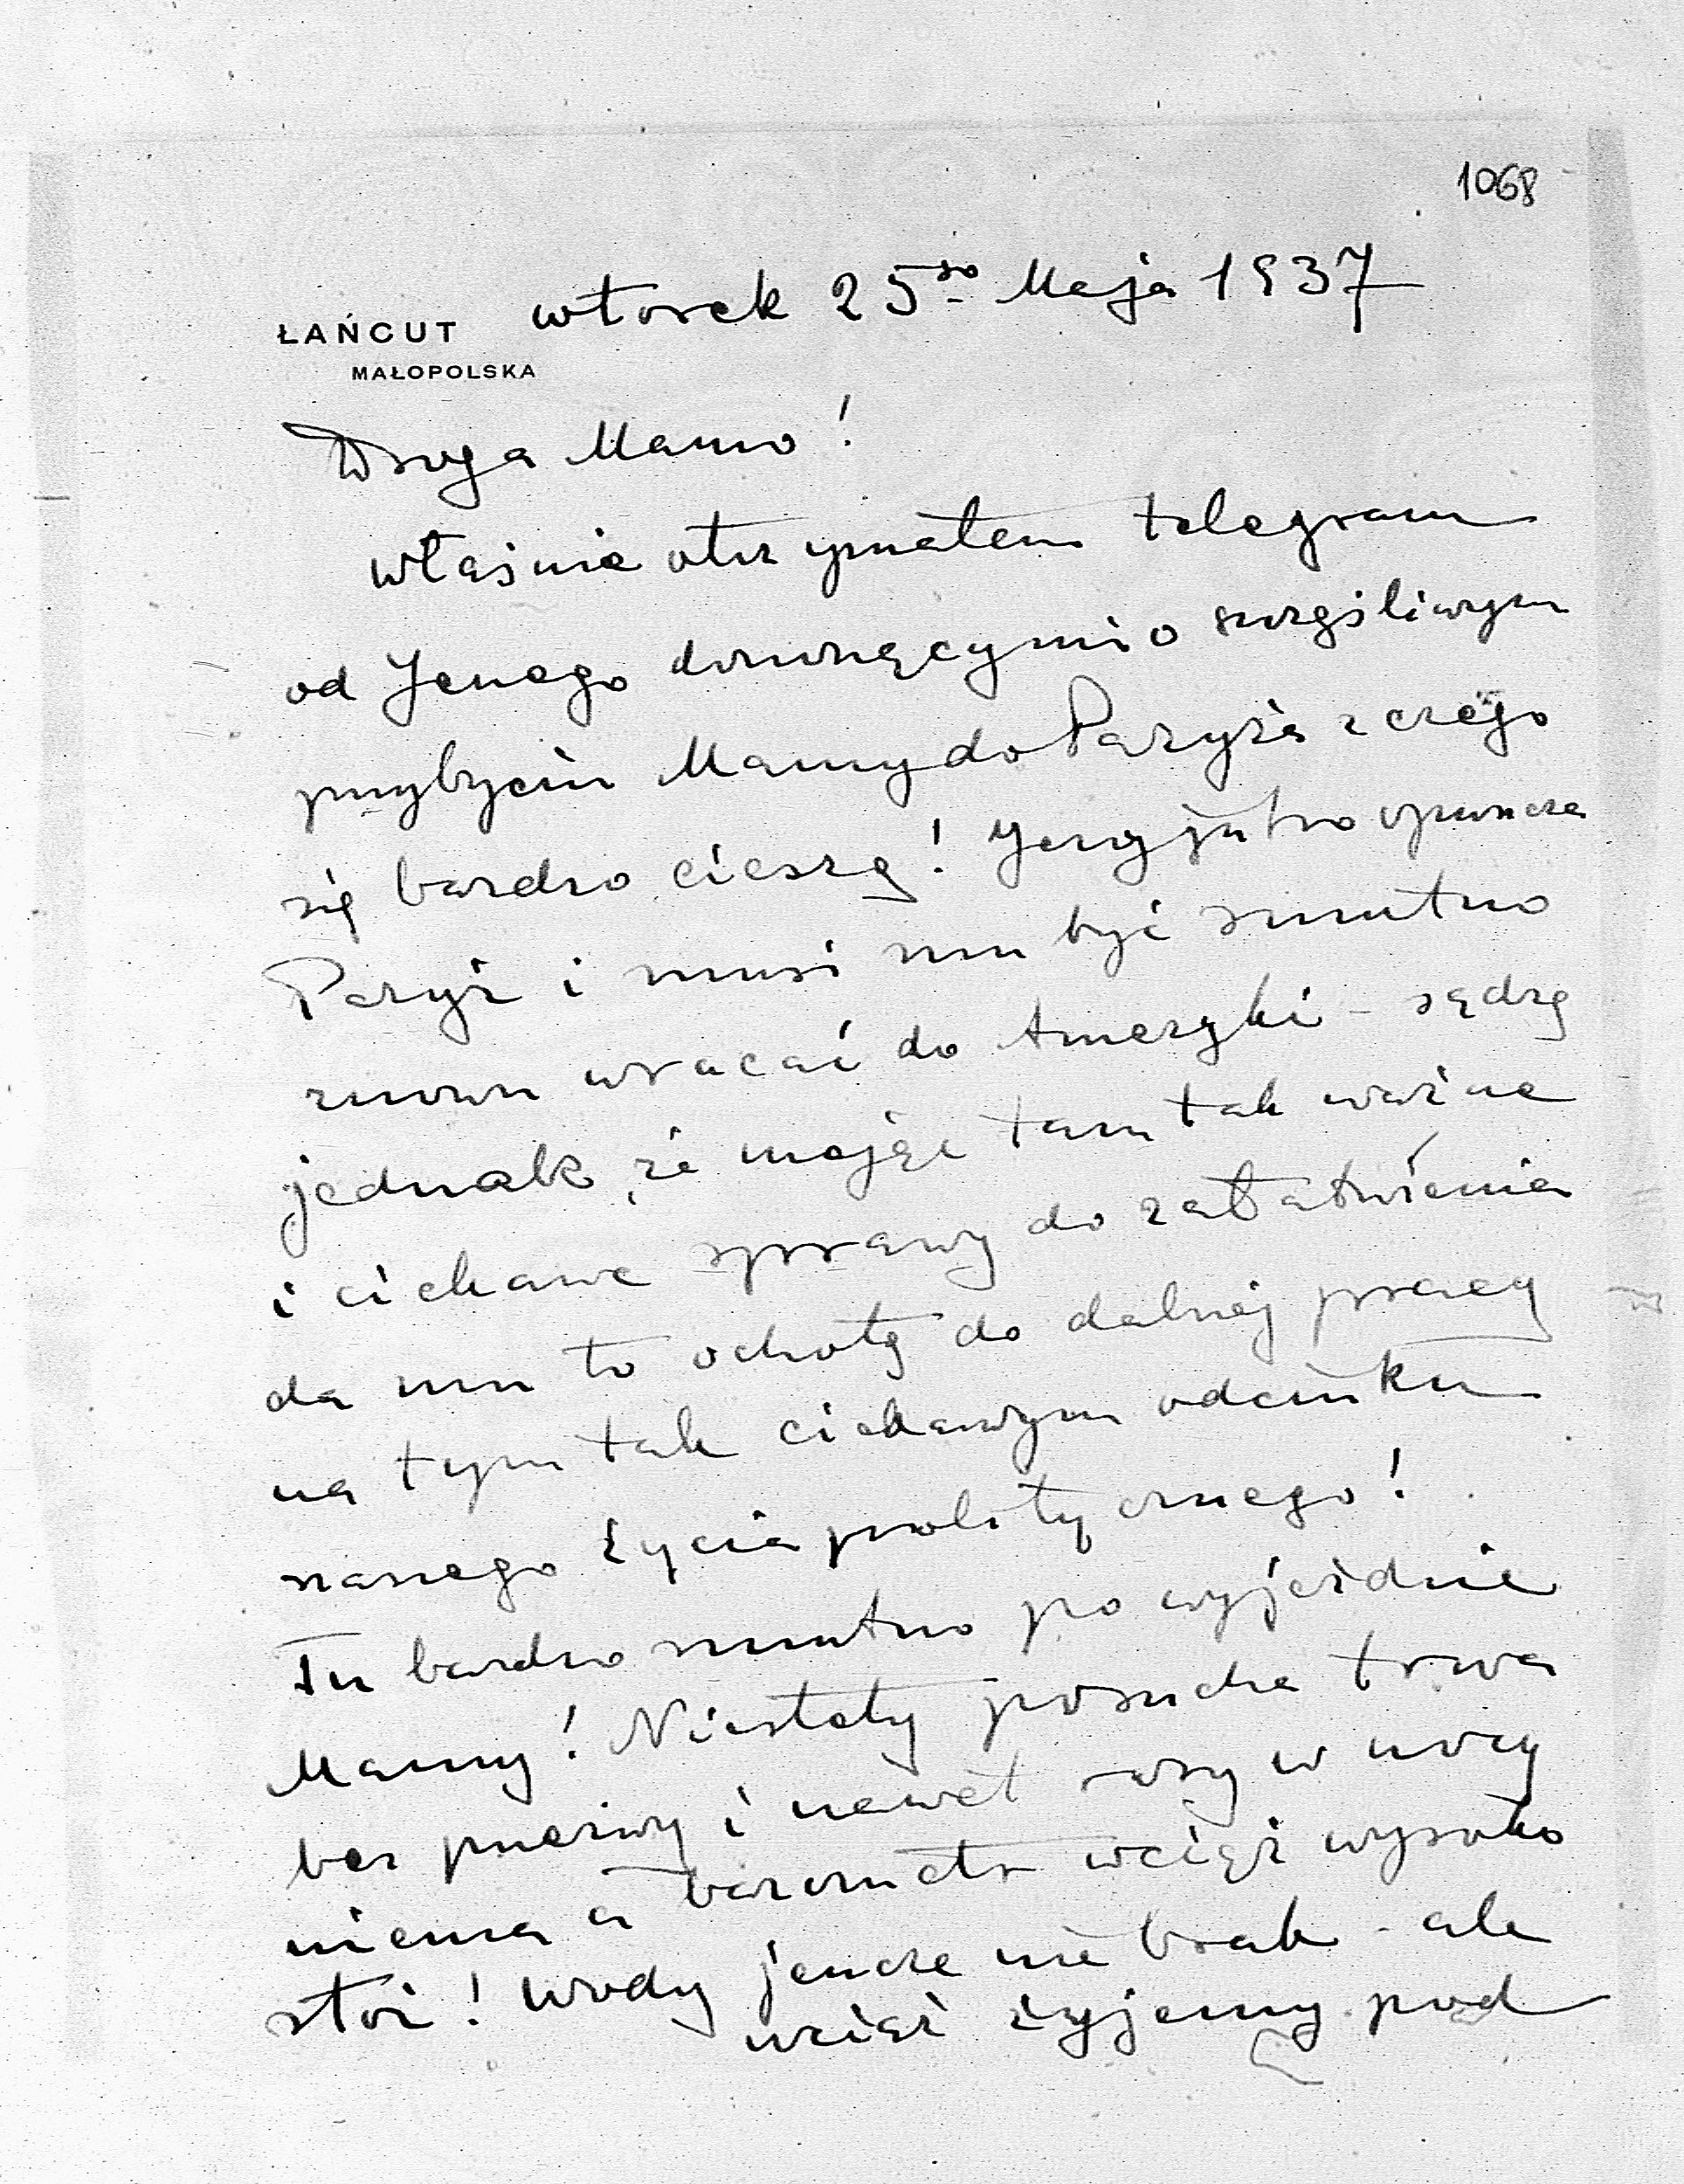 1068
wtorek 25go Maja 1937
ŁAŃCUT
MAŁOPOLSKA
Droga Mamo!
właśnie otrzymałem telegram
od Jerzego donoszący mi o szczęśliwym
przybyciu Mamy do Paryża z czego
się bardzo cieszę! Jerzy jutro opuszcza
Paryż i musi mu być smutno
znowu wracać do Ameryki - sądzę
jednak, że mając tam tak ważne
i ciekawe sprawy do załatwienia
da mu to ochotę do dalszej pracy
na tym tak ciekawym odcinku
naszego życia politycznego!
Tu bardzo smutno po wyjeździe
Mamy! Niestety posucha trwa
bez przerwy i nawet rosy w nocy
niema a barometr wciąż wysoko
stoi! Wody jeszcze nie brak - ale
wciąż żyjemy pod